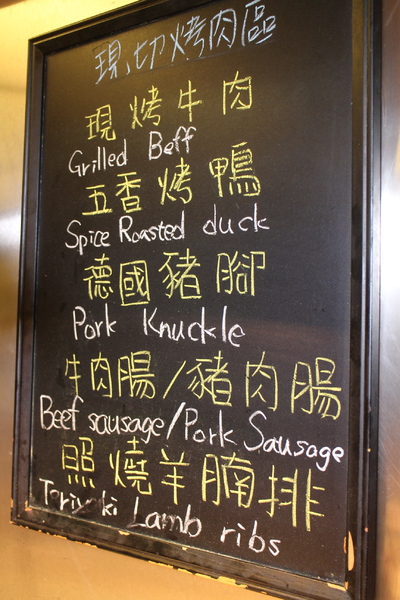 現切烤肉區
現烤牛肉
Grilled Beff
五香烤鴨
Spice Roasted duck
德國豬腳
Pork Knuckle
牛肉腸/豬肉腸
Beef sausage/Pork Sausage
照燒羊腩排
Teriyaki Lamb ribs